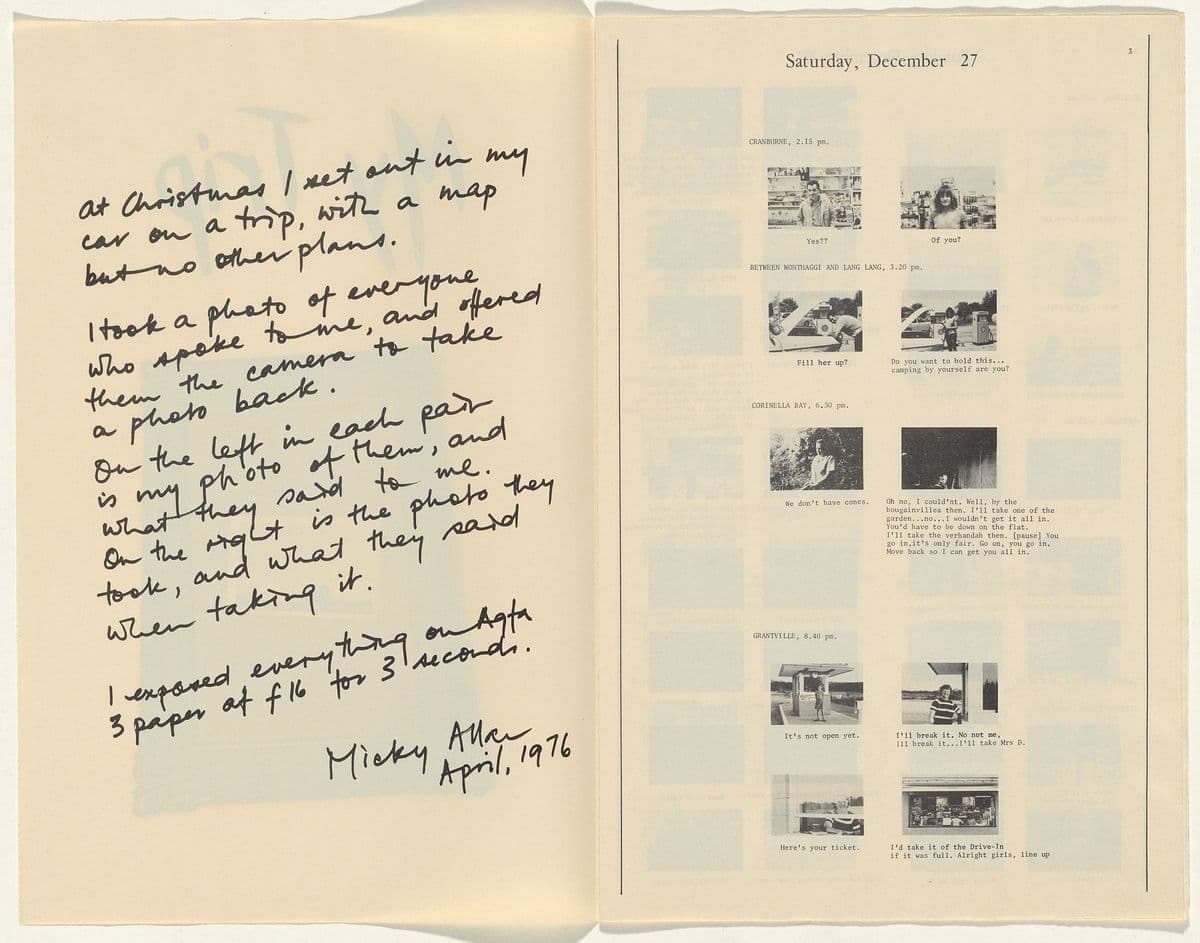 at Christmas I set out in my
car on a trip, with a map
but no other plans.
I took a photo of everyone
who spoke to me, and offered
them the camera to take
a photo back.
On the left in each pair
is my photo of them, and
what they said to me.
On the right is the photo they
took, and what they said
when taking it.
I exposed everything on Agfa
3 paper at f16 for 3 seconds.
Micky Allan
April, 1976
My Trip
3
Saturday, December 27
CRANBURNE, 2.15 pm.
Yes??
Of you?
BETWEEN WONTHAGGI AND LANG LANG, 3.20 pm.
Fill her up?
Do you want to hold this...
camping by yourself are you?
CORINELLA BAY, 6.30 pm.
We don't have cones.
Oh no, I could'nt. Well, by the
bougainvillea then. I'll take one of the
garden...no...I wouldn't get it all in.
You'd have to be down on the flat.
I'll take the verhandah then. [pause] You
go in,it's only fair. Go on, you go in.
Move back so I can get you all in.
GRANTVILLE, 8.40 pm.
It's not open yet.
I'll break it. No not me,
ill break it...I'll take Mrs D.
Here's your ticket.
I'd take it of the Drive-In
if it was full. Alright girls, line up